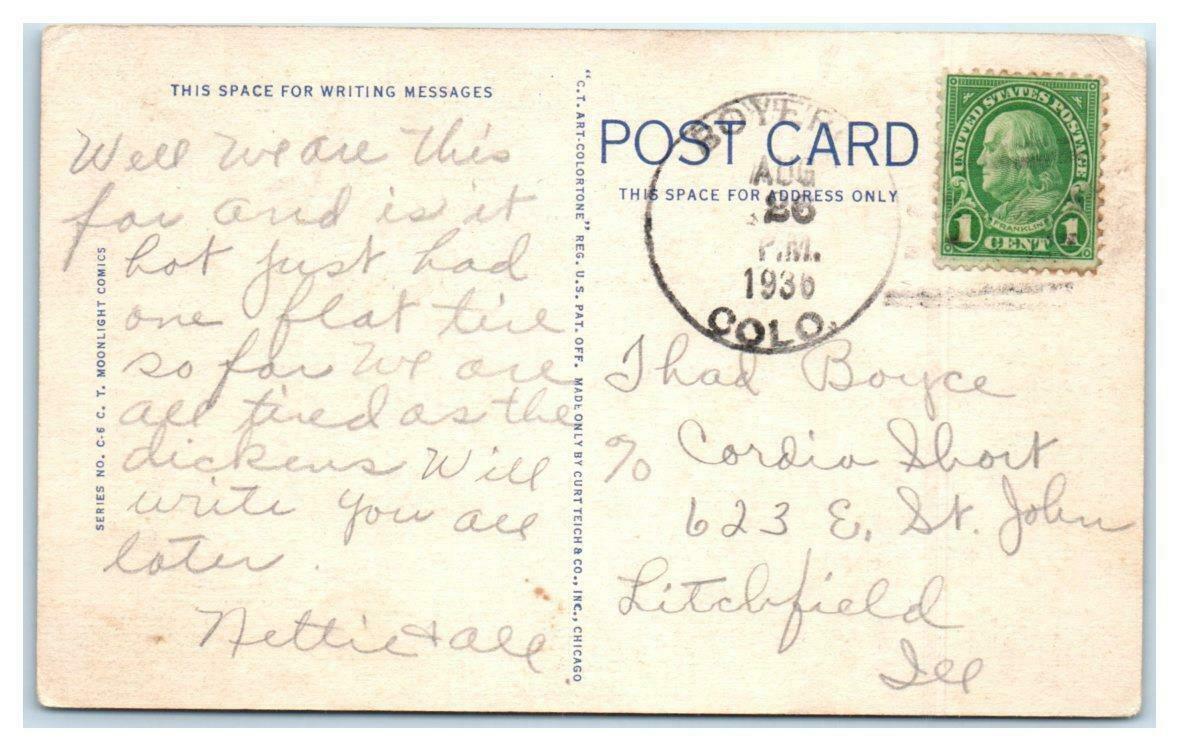 THIS SPACE FOR WRITING MESSAGES
Well we are this
far and is it
hot just had
one flat tire
so far We are
all tired as the
dickens Will
write you all
later.
Nettie & all
SERIES NO. C-6 C. T. MOONLIGHT COMICS
"C.T. ART-COLORTONE" REG. U.S. PAT. OFF. MADE ONLY BY CURT TEICH & CO., INC., CHICAGO
POST CARD
THIS SPACE FOR ADDRESS ONLY
BOYER
AUG
26
P.M.
1936
COLO.
UNITED STATES POSTAGE
FRANKLIN
1 CENT 1
Thad Boyce
c/o Cordia Short
623 E. St. John
Litchfield
Ill